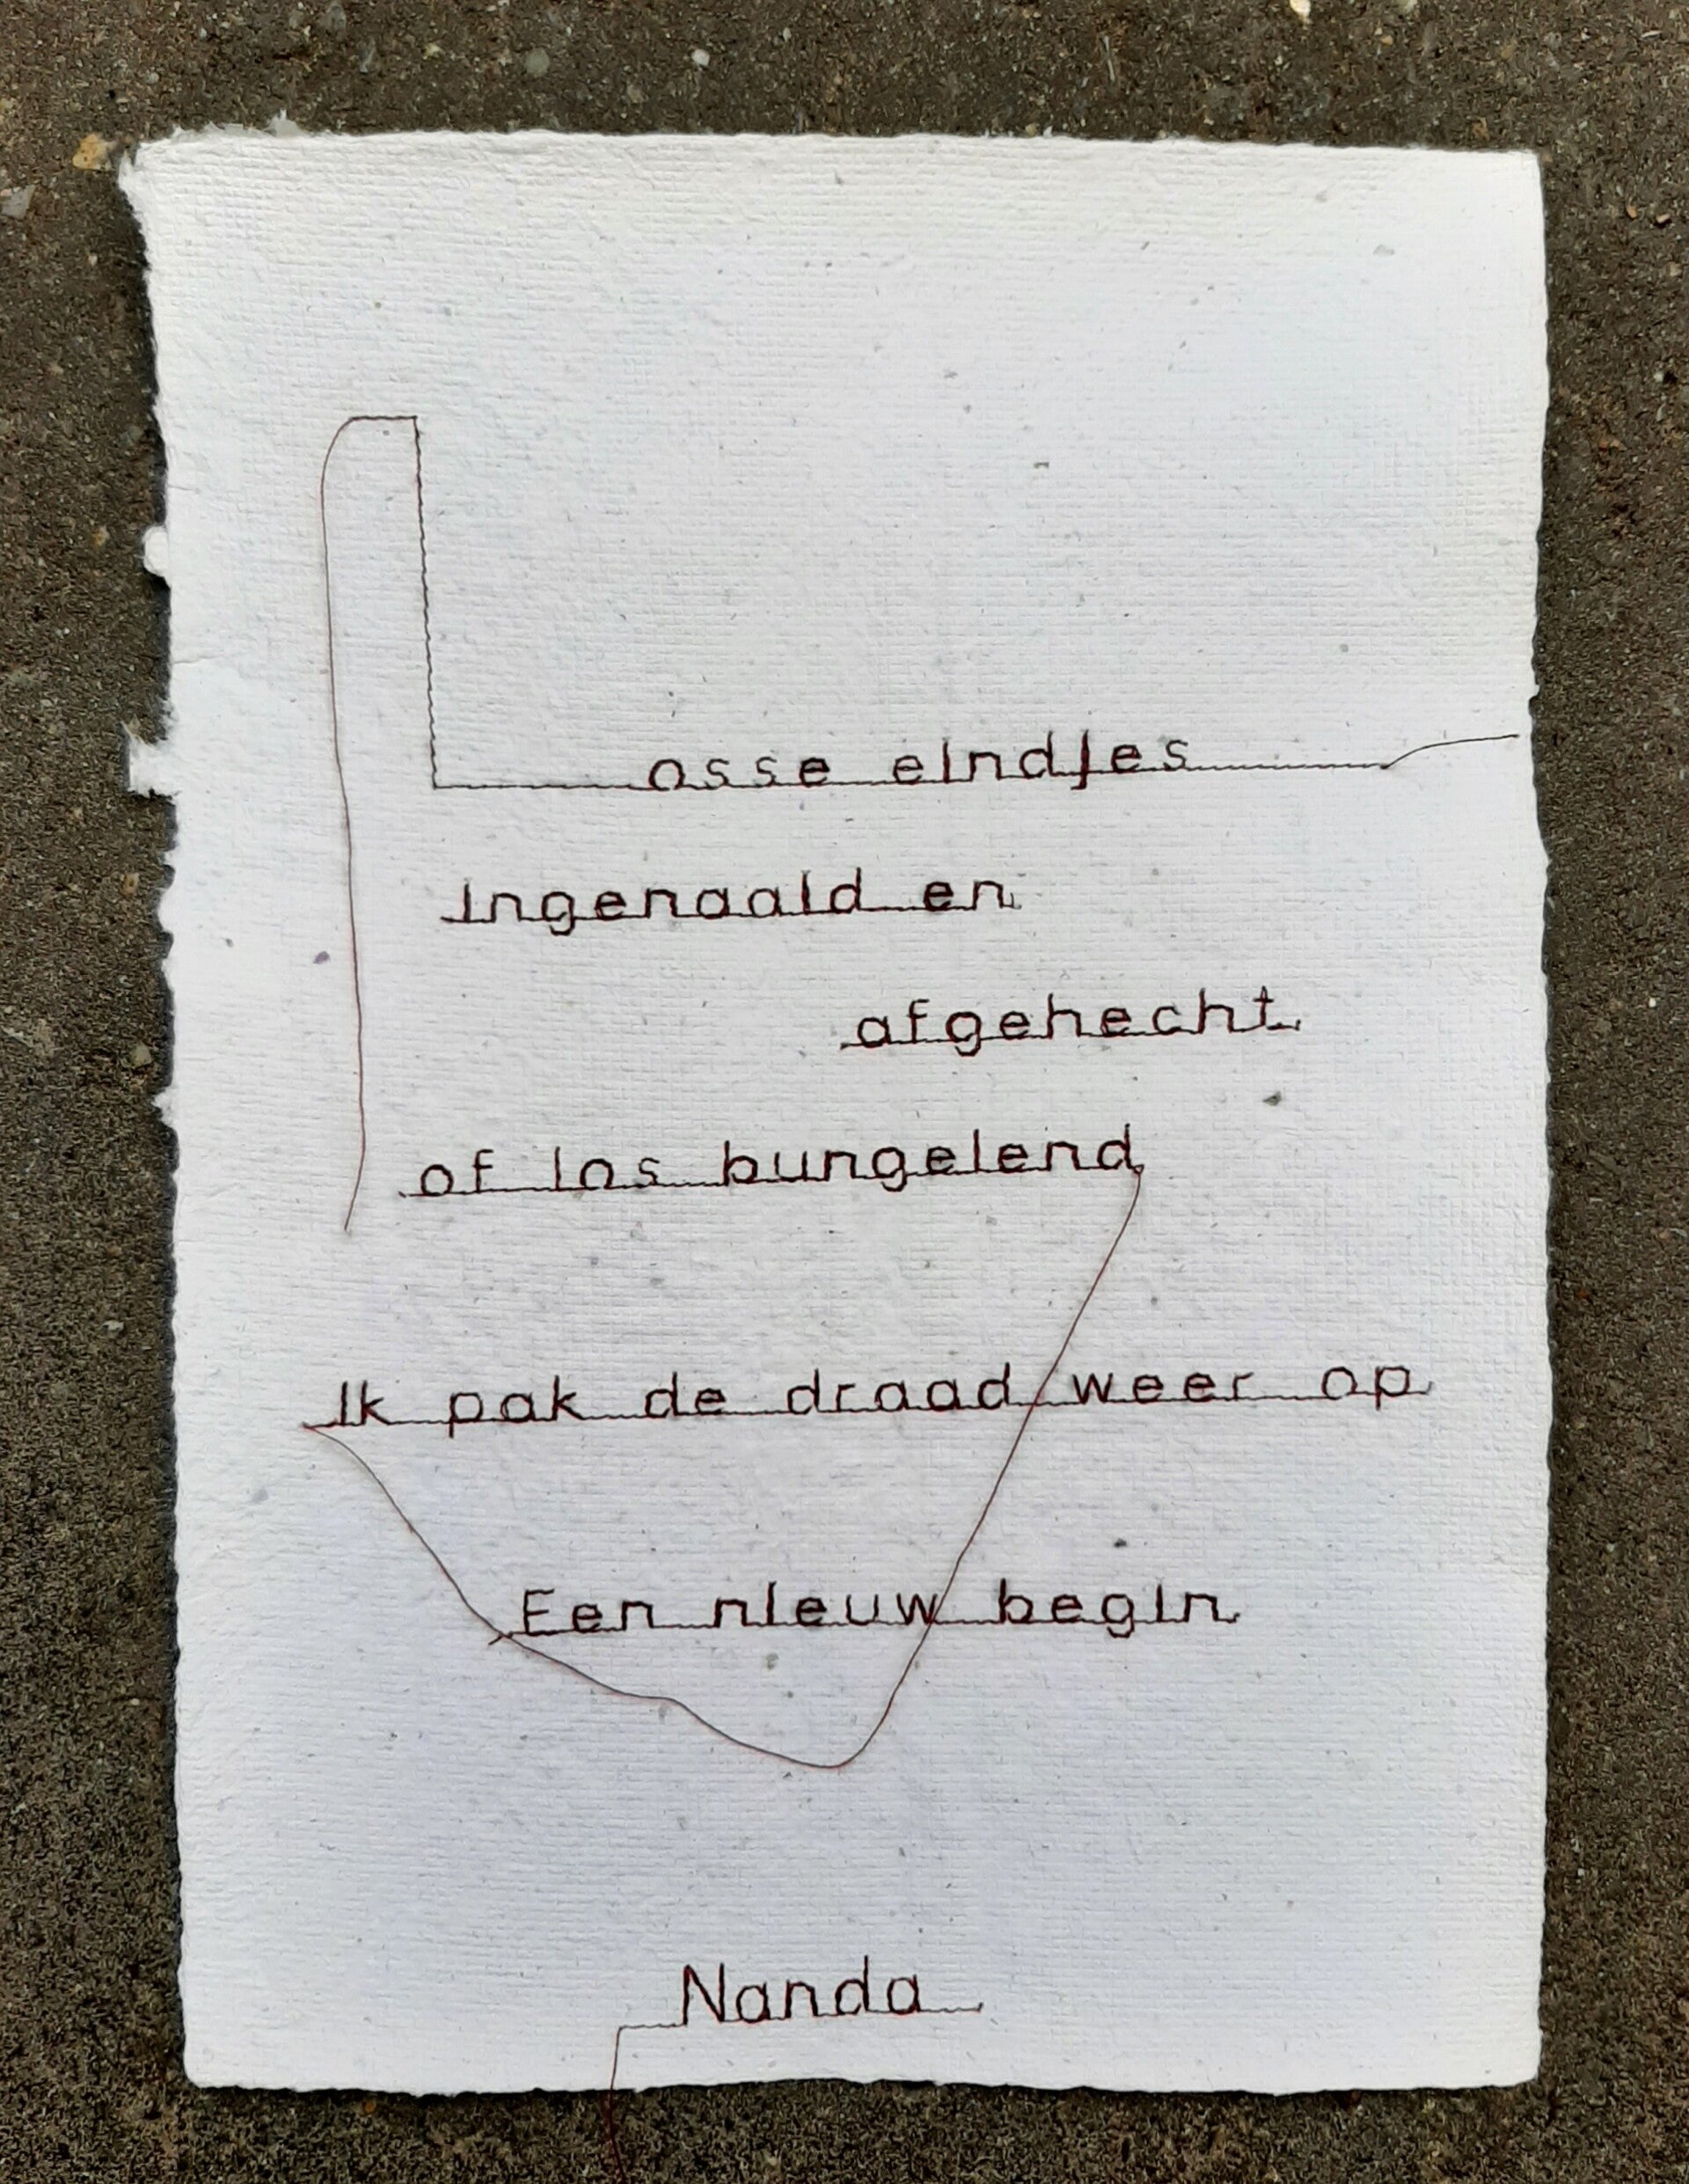 Losse eindjes
ingenaald en
afgehecht
of los bungelend
Ik pak de draad weer op
Een nieuw begin
Nanda